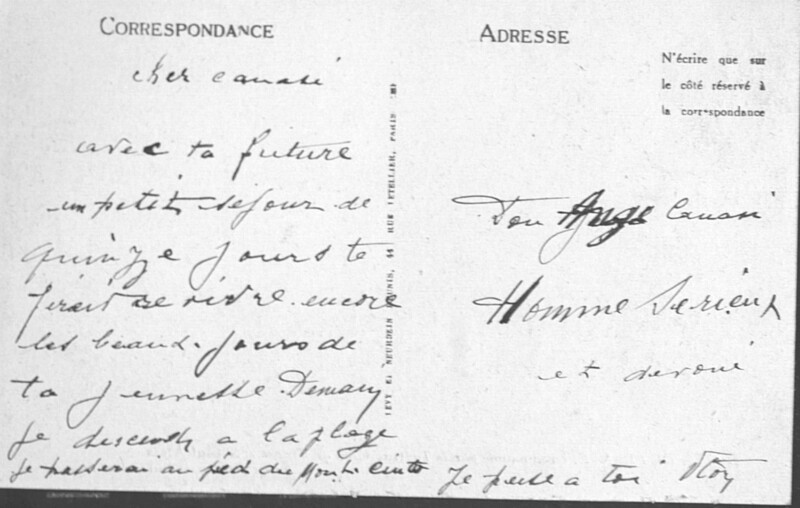 CORRESPONDANCE
cher canasi
avec ta future
un petit séjour de
quinze jours te
ferait revivre encore
les beaux jours de
ta jeunesse. Demain
je descends a la plage
je passerai au pied du Monte cinto
LEVY ET NEURDEIN RÉUNIS, 44 RUE LETELLIER, PARIS
ADRESSE
N'écrire que sur
le côté réservé à
la correspondance
Don Ange Canasi
Homme Serieux
et devoué
Je pense a toi